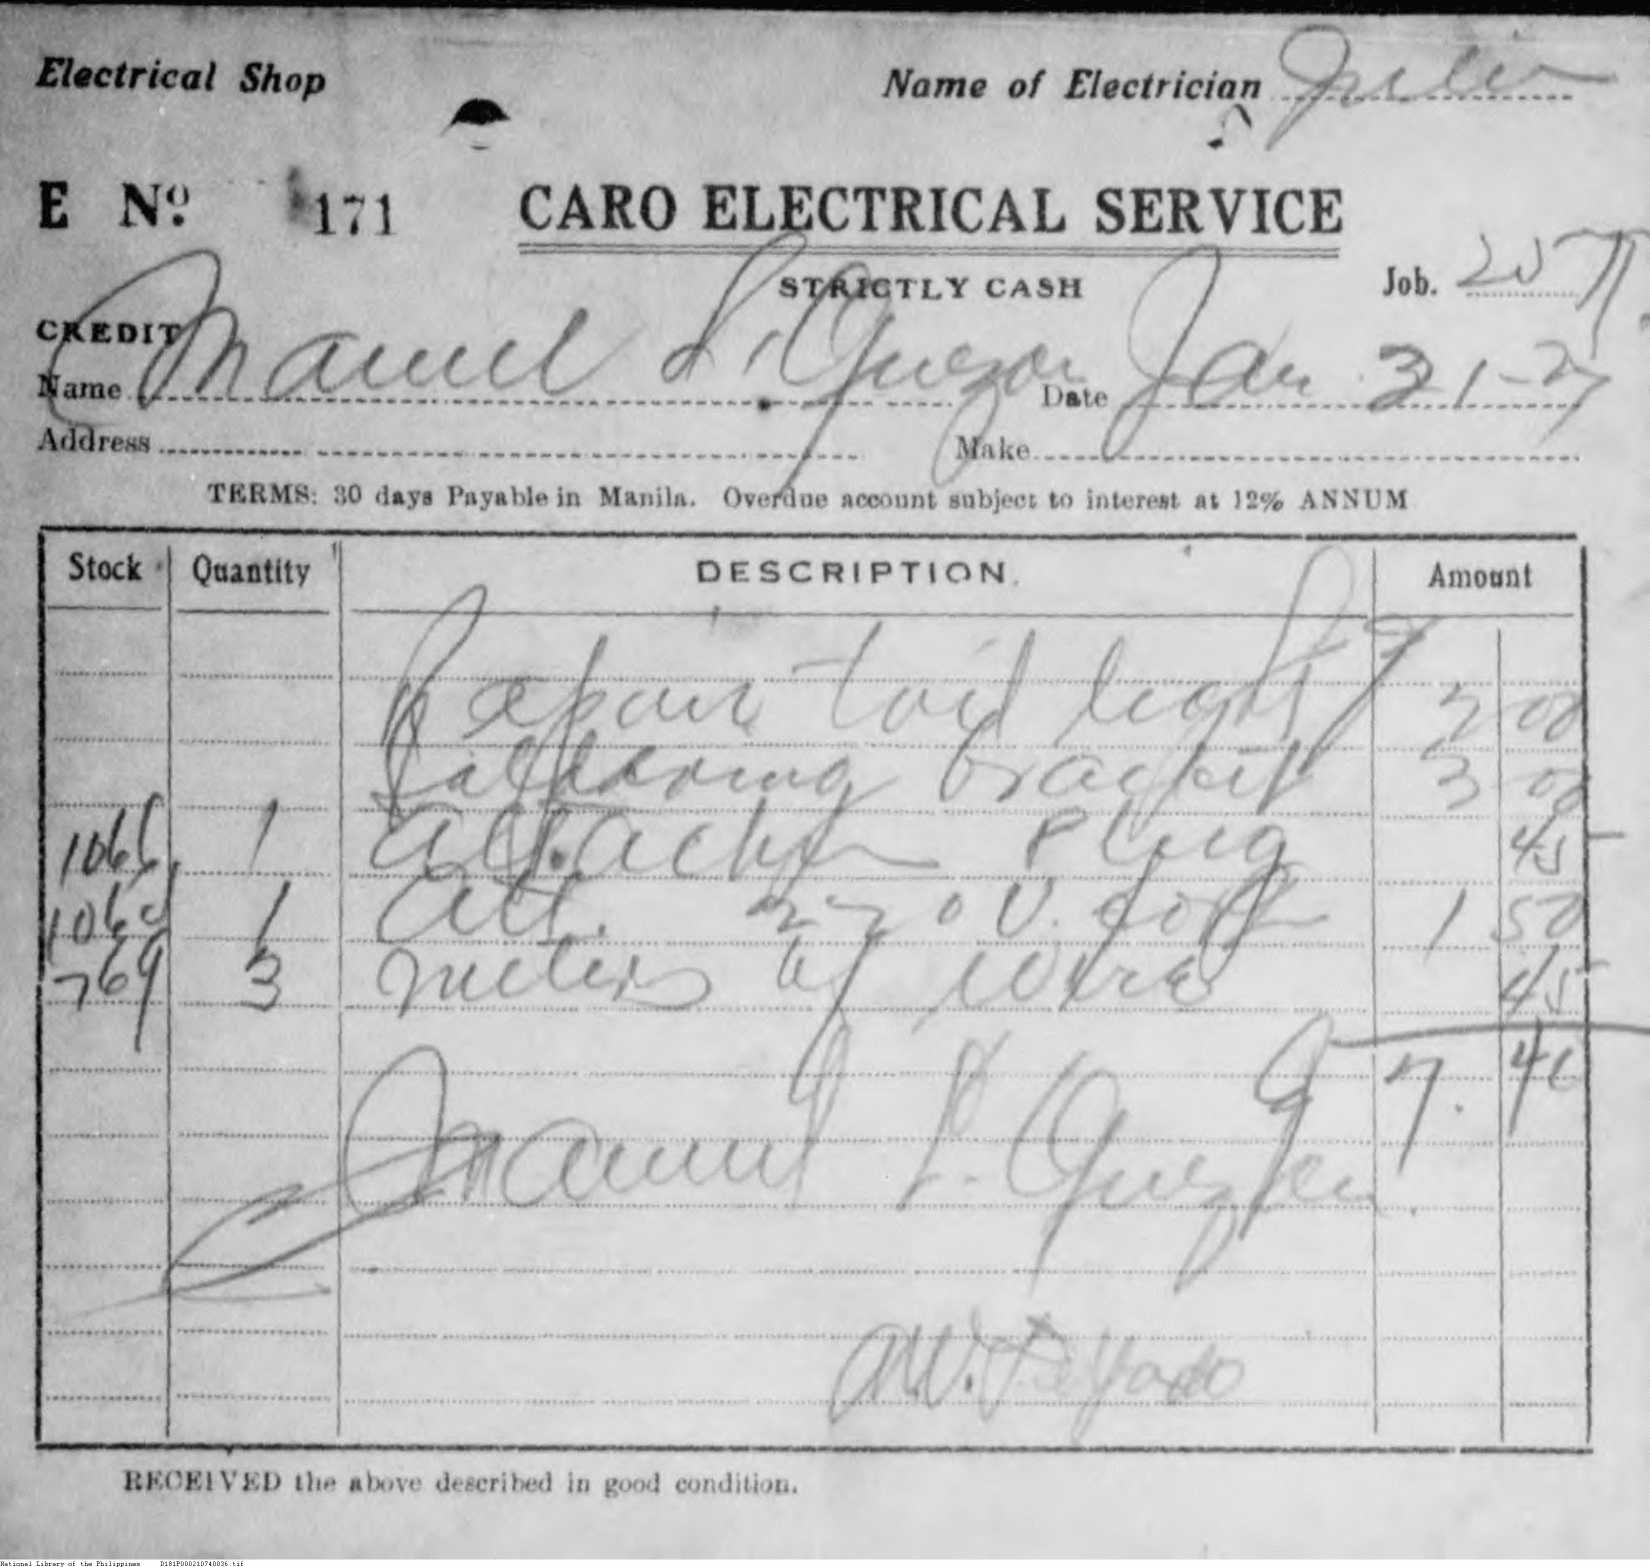 Electrical Shop
Name of Electrician Julio
E No. 171 CARO ELECTRICAL SERVICE
STRICTLY CASH
Job.
CREDIT
Name Manuel L. Quezon Date Jan 31-27
Address Make
TERMS: 30 days Payable in Manila. Overdue account subject to interest at 12% ANNUM
Stock Quantity DESCRIPTION Amount
Repair tail light 2 00
bracket 3 00
1066 1 Plug 45
1 Att. 220 V. 1 50
769 3 meters of wire 45
7. 40
Manuel L. Quezon
RECEIVED the above described in good condition.
National Library of the Philippines D181P000210740036.tif